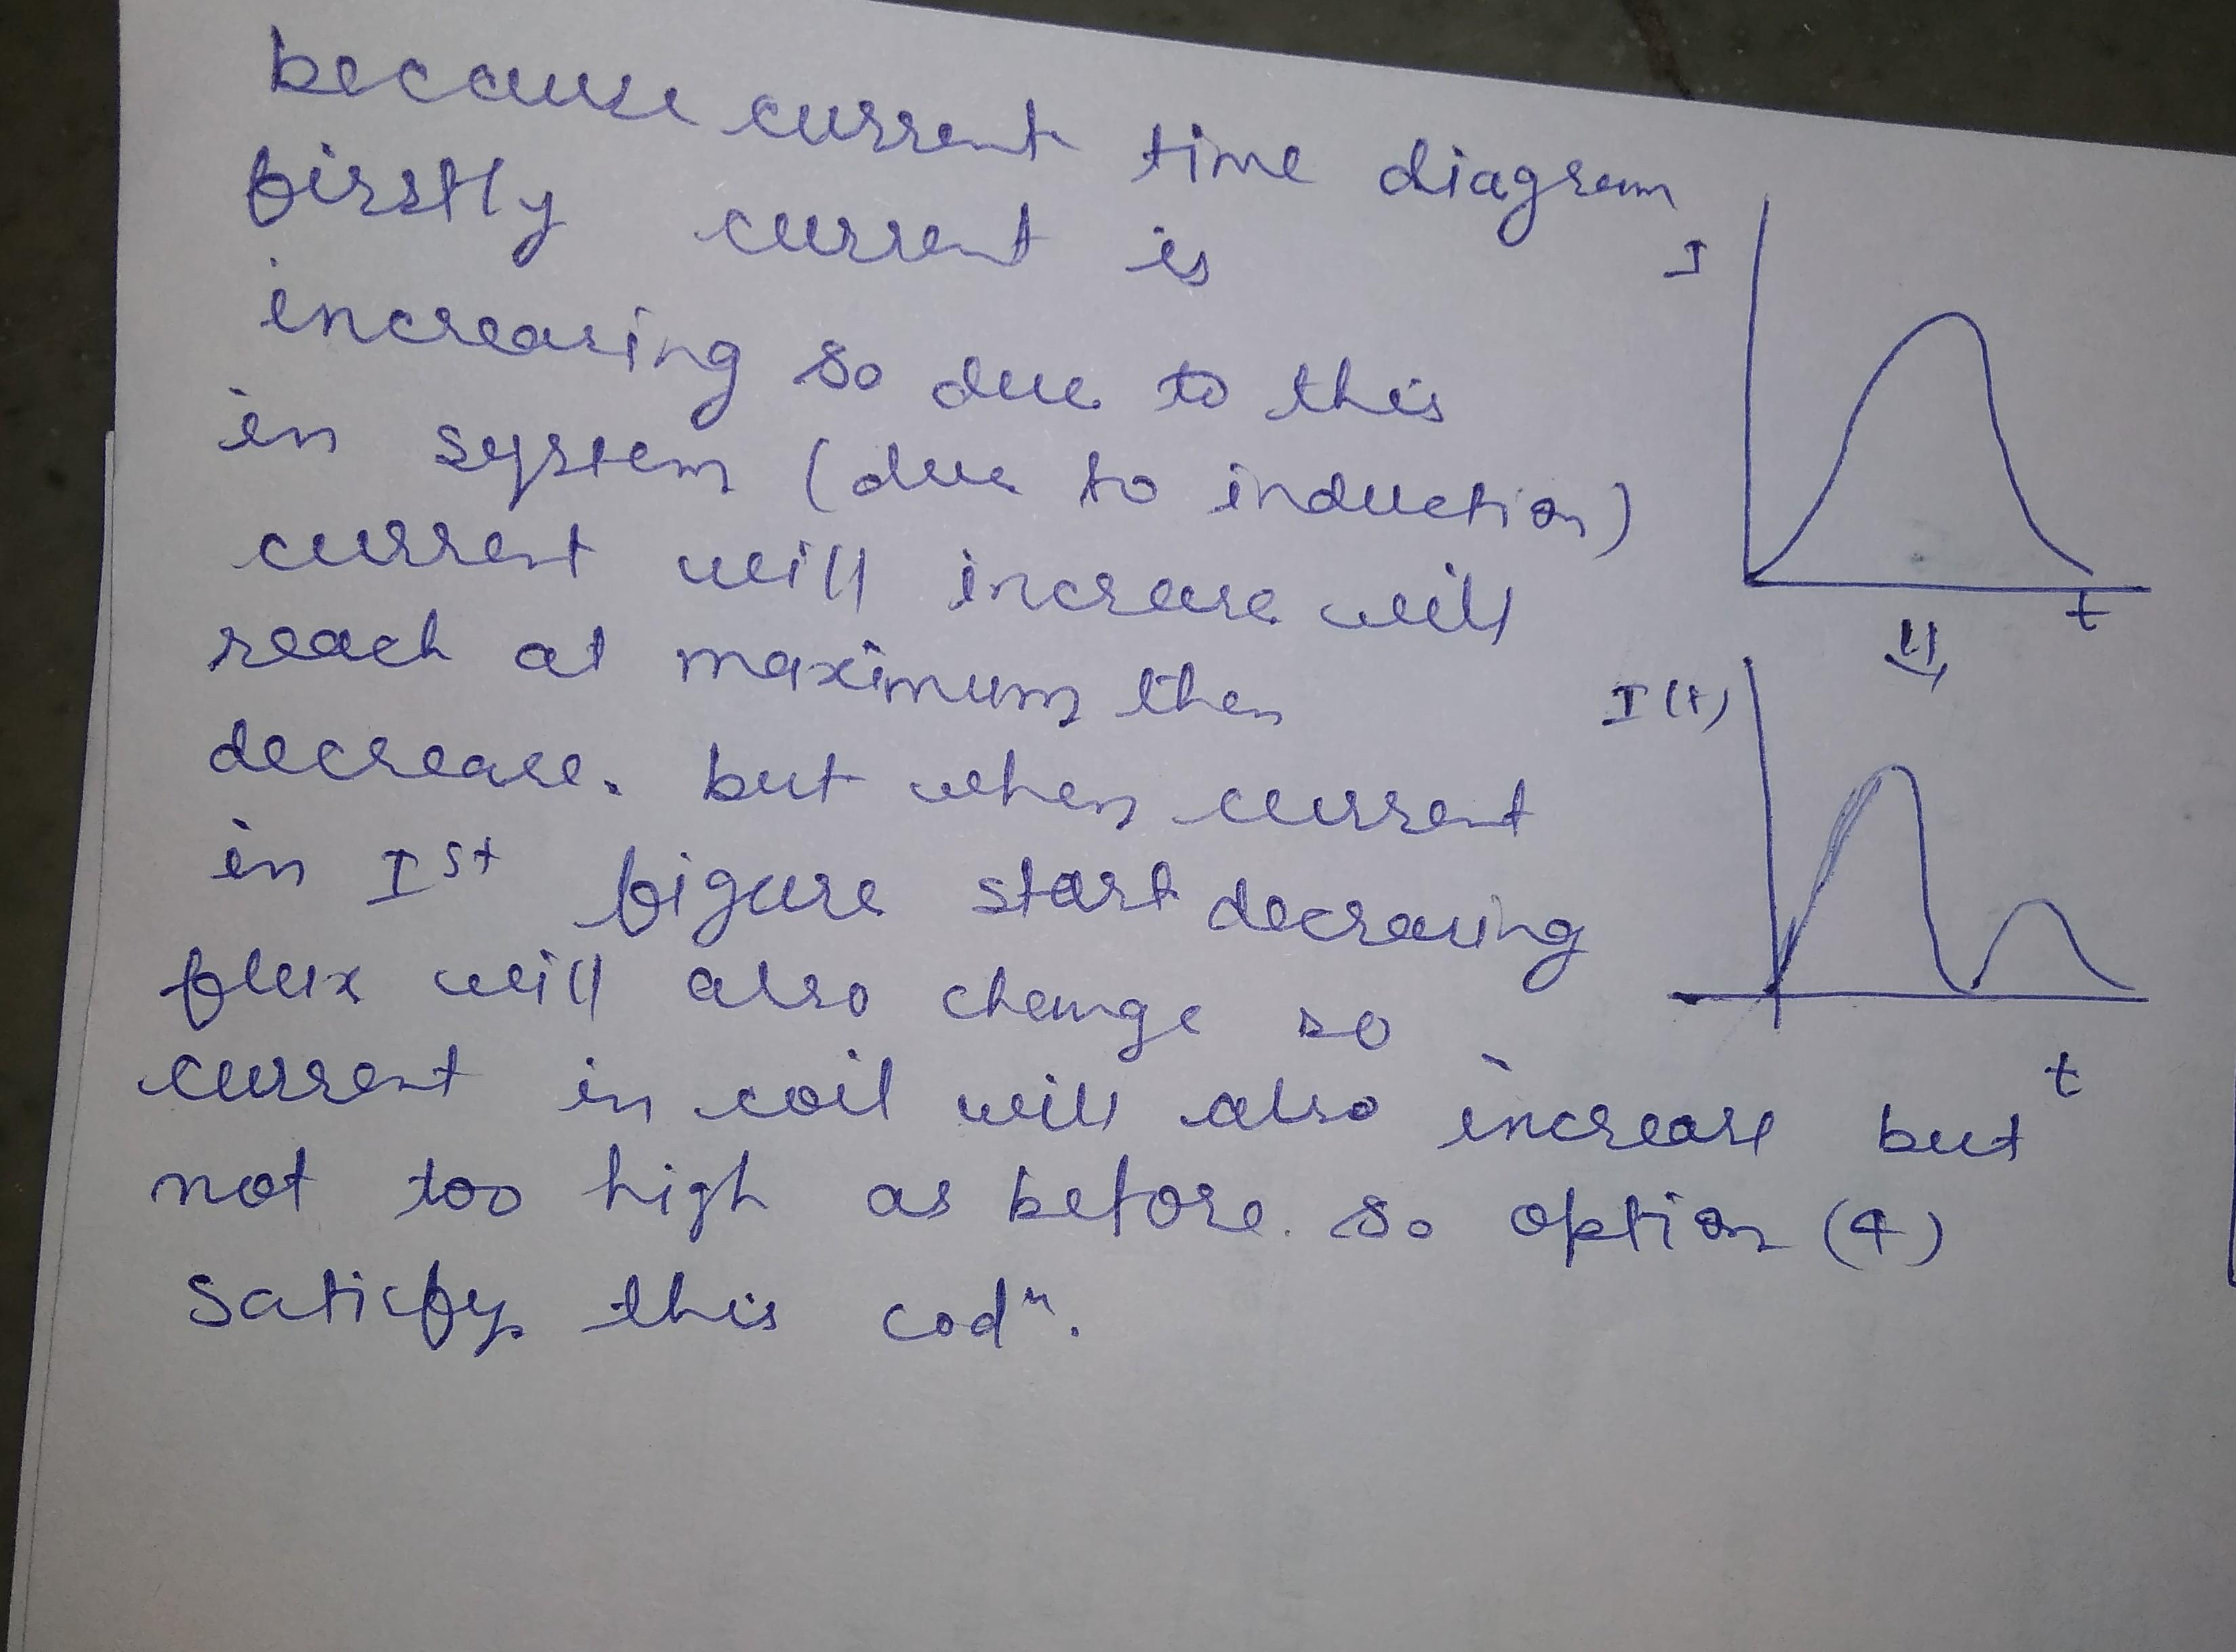 because current time diagram
firstly current is
increasing so due to this
in system (due to induction)
current will increase will
reach at maximum then
decrease. but when current
in Ist figure start decreasing
flux will also change so
current in coil will also increase but
not too high as before. So option (4)
Satisfy this codn.
I
t
I(t)
t